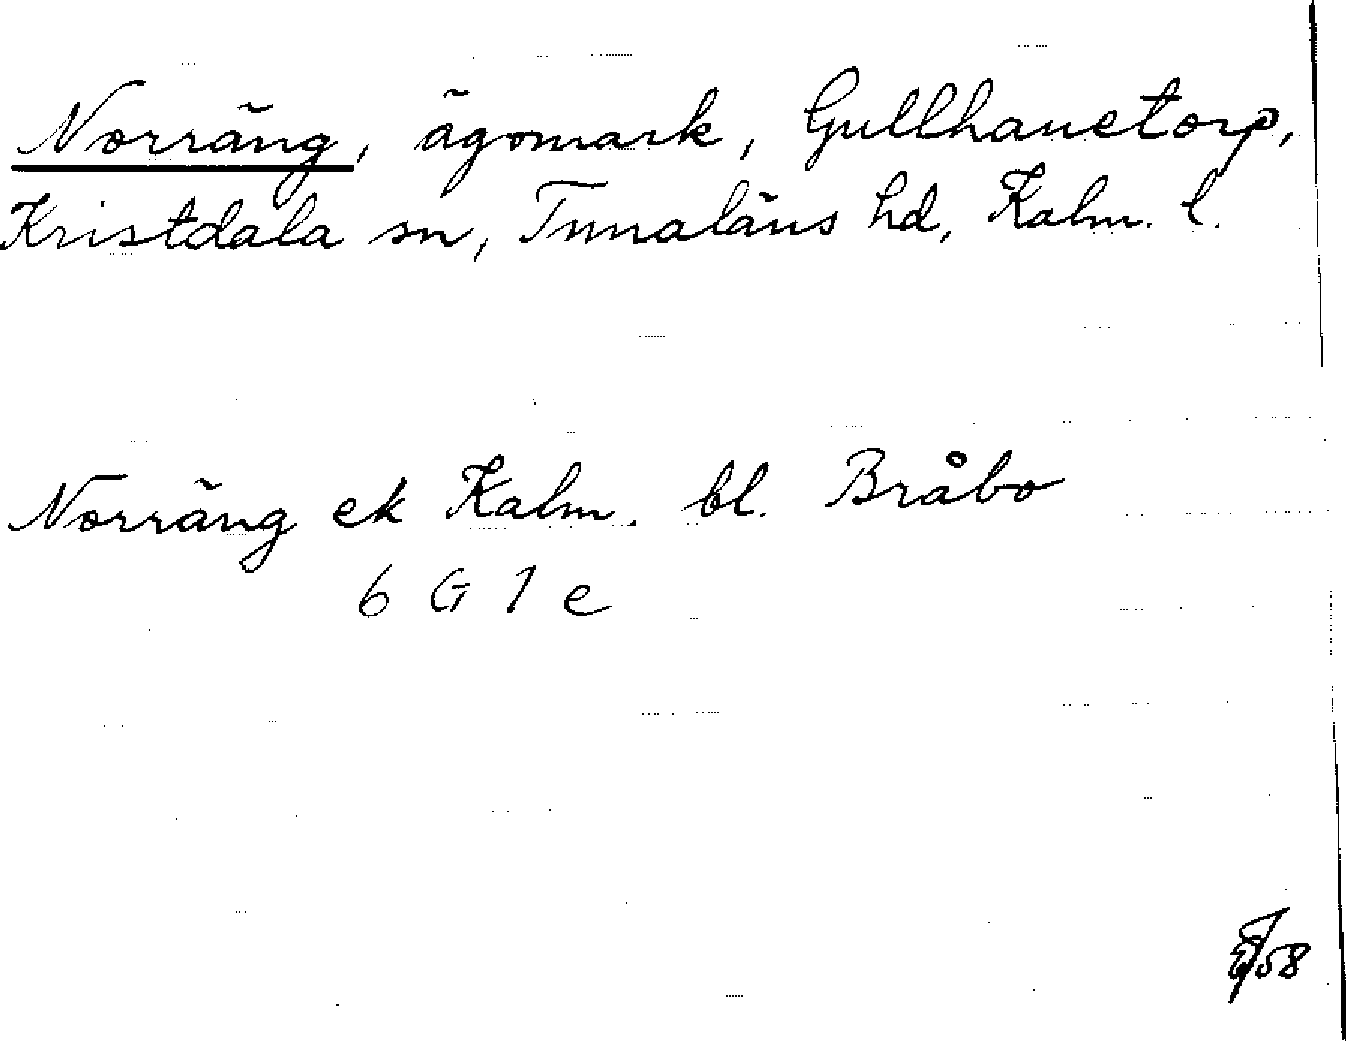 Norräng, ägomark, Gullhanetorp,
Kristdala sn, Tunaläns hd, Kalm. l.
Norräng ek Kalm. bl. Bråbo
6 G 1 e
58